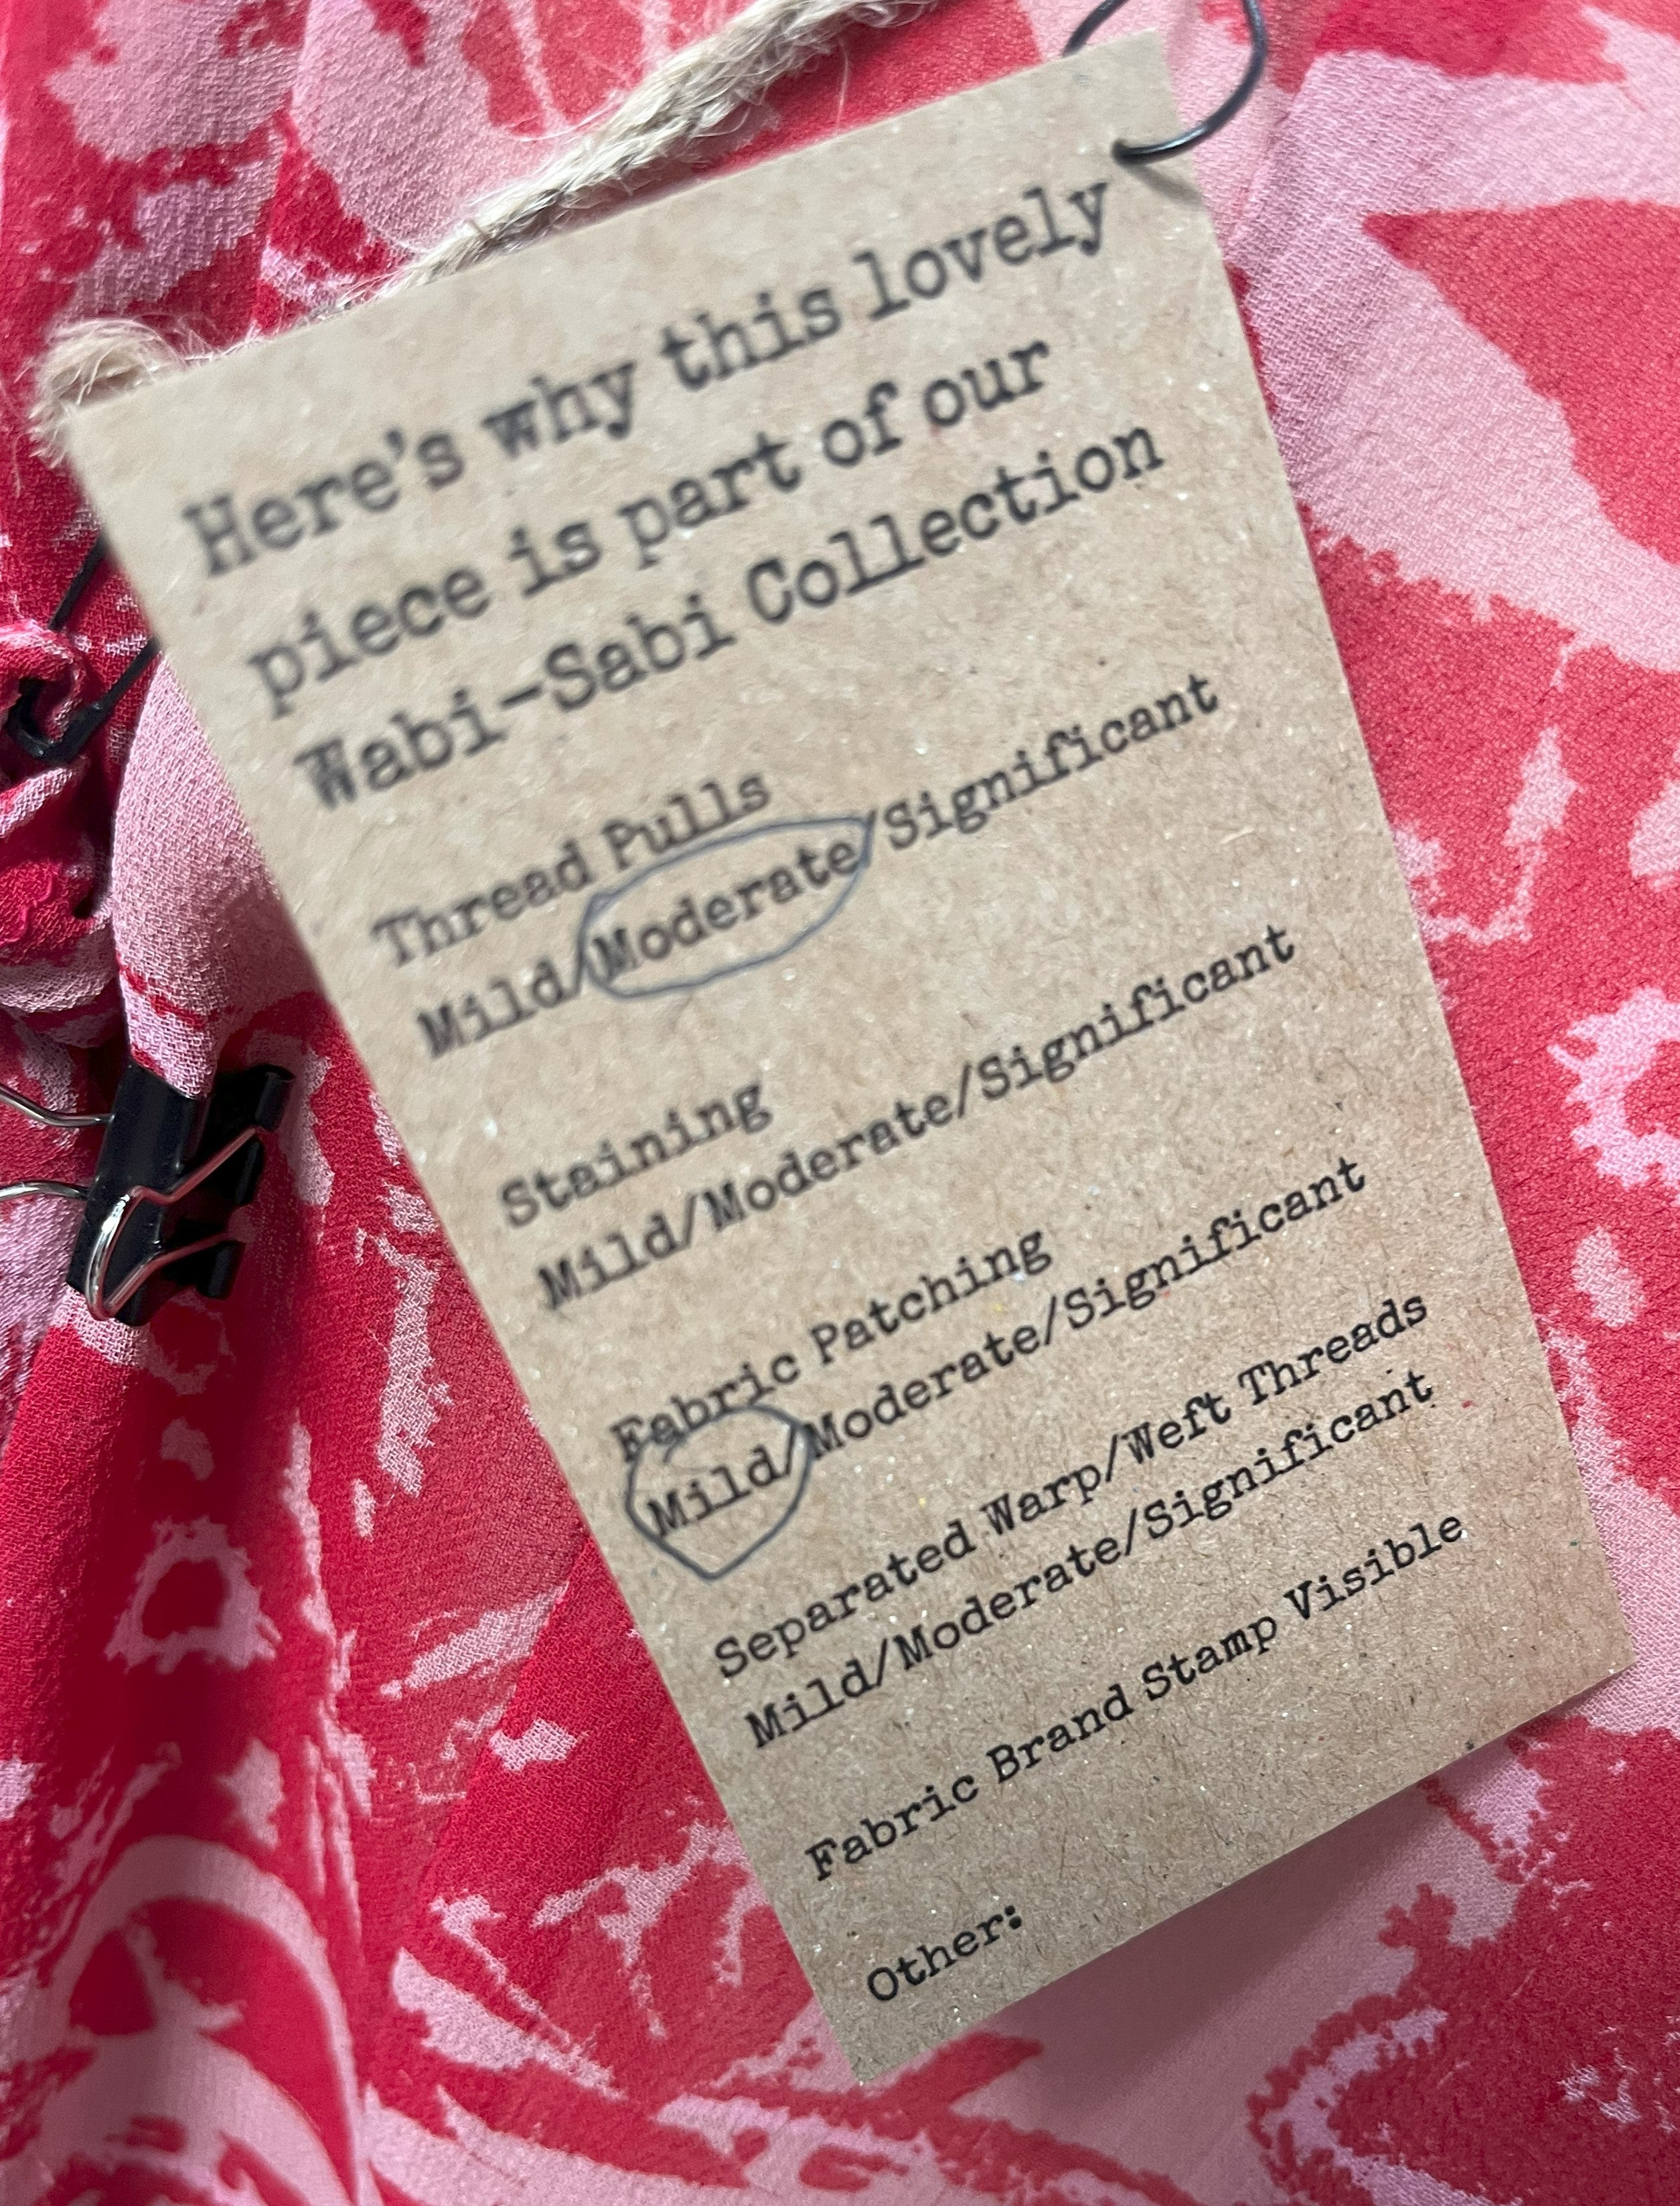 Here's why this lovely
piece is part of our
Wabi-Sabi Collection
Thread Pulls
Mild/Moderate/Significant
Staining
Mild/Moderate/Significant
Fabric Patching
Mild/Moderate/Significant
Separated Warp/Weft Threads
Mild/Moderate/Significant
Fabric Brand Stamp Visible
Other: